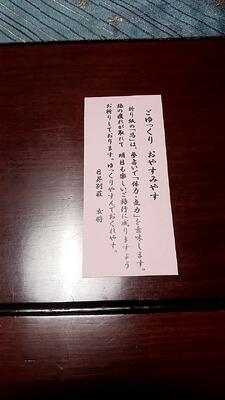 ごゆっくり おやすみやす
折り紙の「馬」は、夢占いで「体力・気力」を意味します。
旅の疲れが取れて 明日も楽しいご旅行に成りますよう
お祈りしております。ゆっくりやすんでおくれやす。
日昇別荘 女将